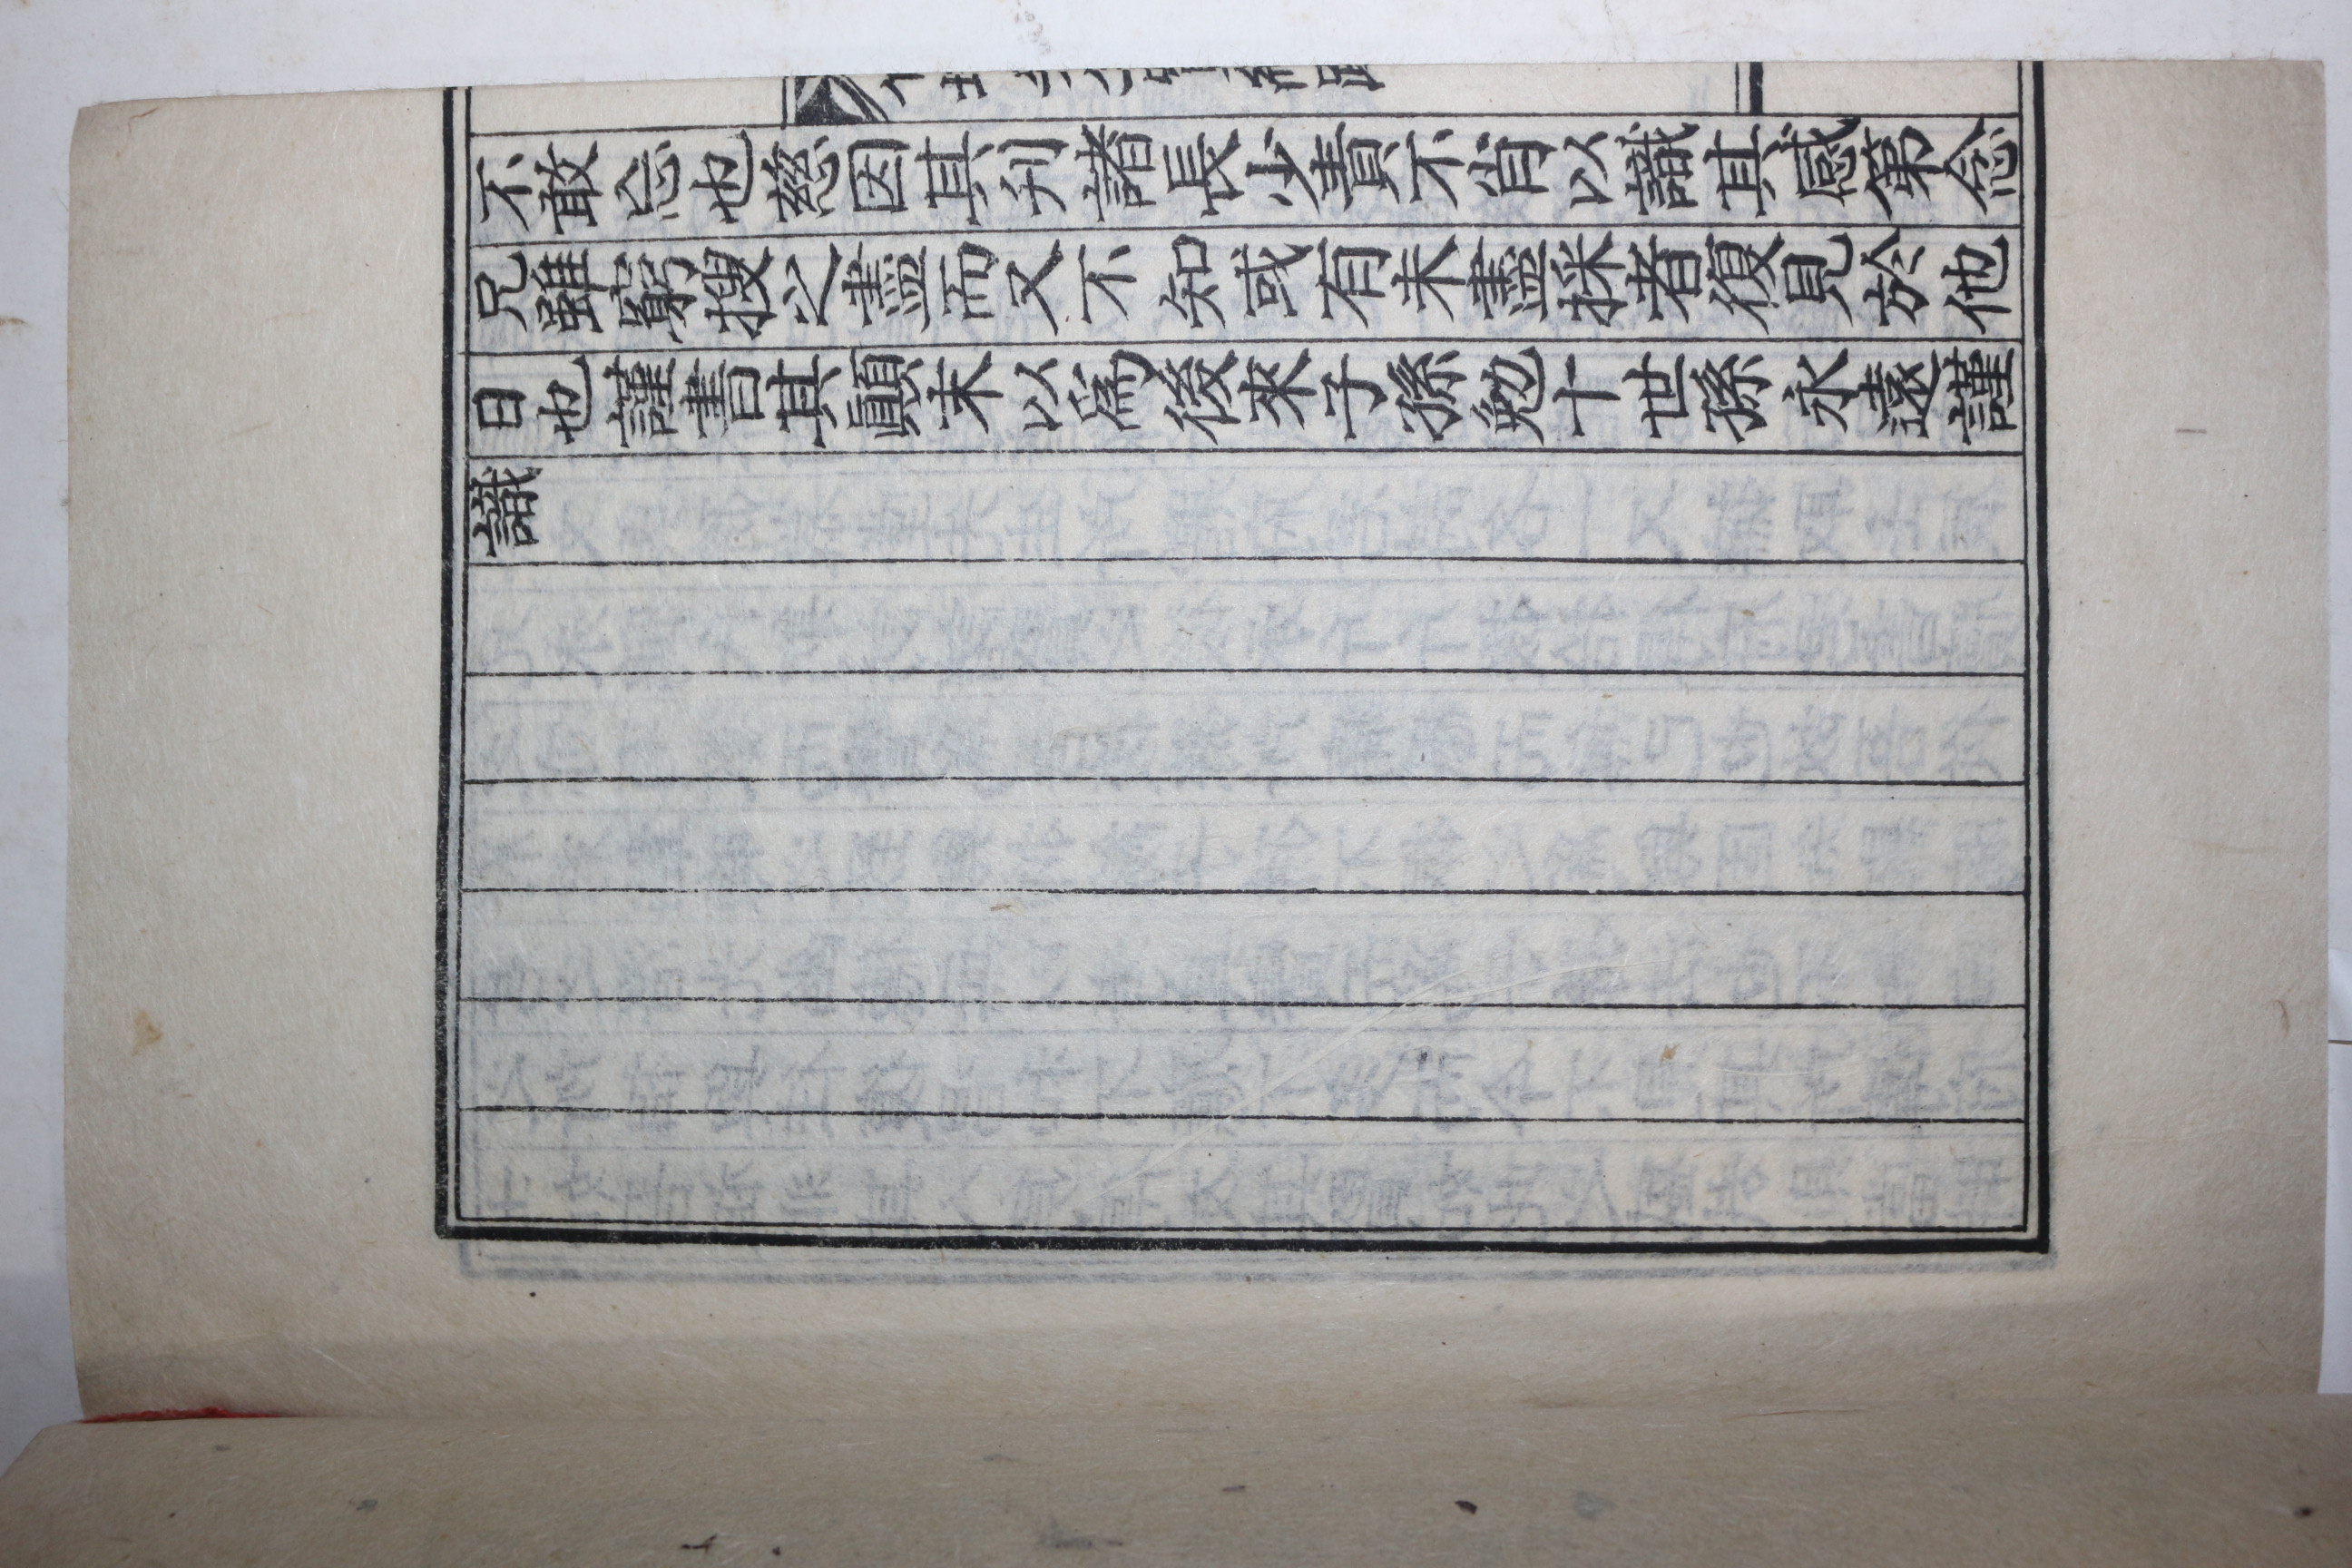 不敢忘也慈因其刋諸長少責不肖以識其感第念
兄雖窮搜之盡而又不知或有未盡採者復見於他
日也謹書其顚末以爲後來子孫勉十世孫永遠謹
識